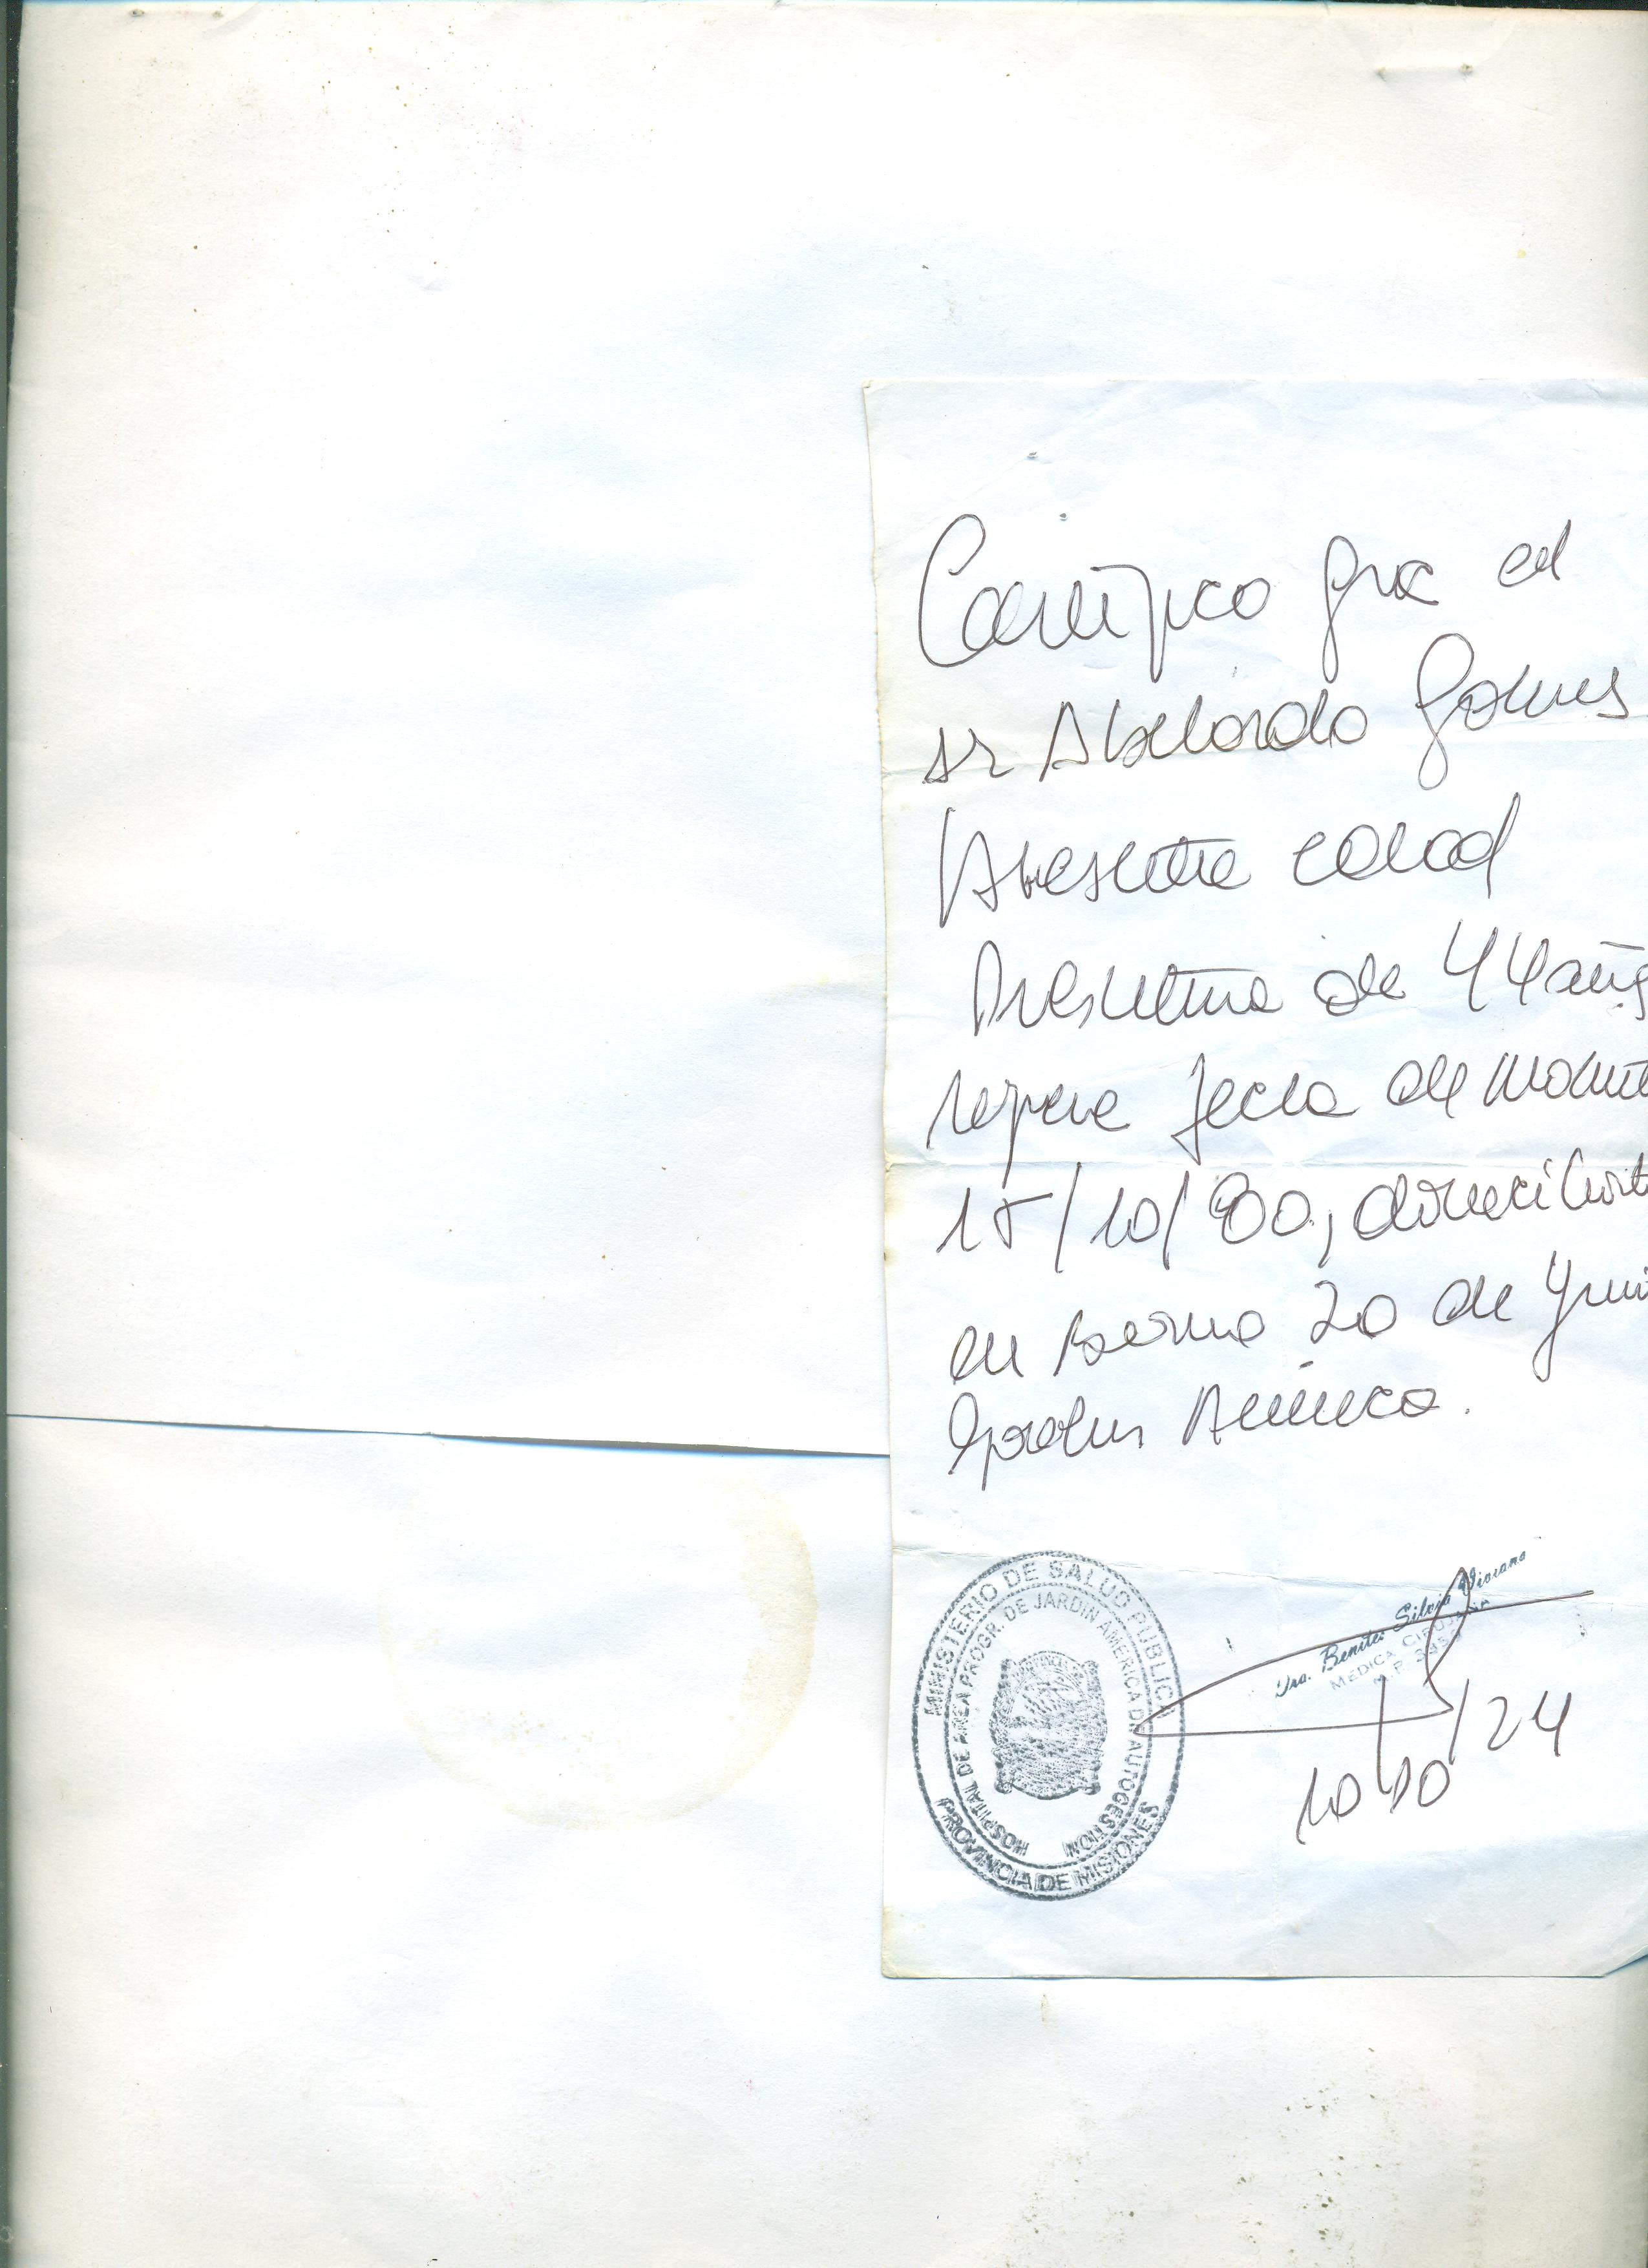 Certifico que el
sr Abelardo Gomes
Presenta edad
Presuntiva de 44 años
refiere fecha de
15/10/80,
en Barrio 20 de Juni
America.
MINISTERIO DE SALUD PUBLICA
HOSPITAL DE AREA PROGR. DE JARDIN AMERICA DE AUTOGESTION
PROVINCIA DE MISIONES
Dra. Benitez Silvia Viviana
MEDICA CIRUJANA
M.P.
10/10/24